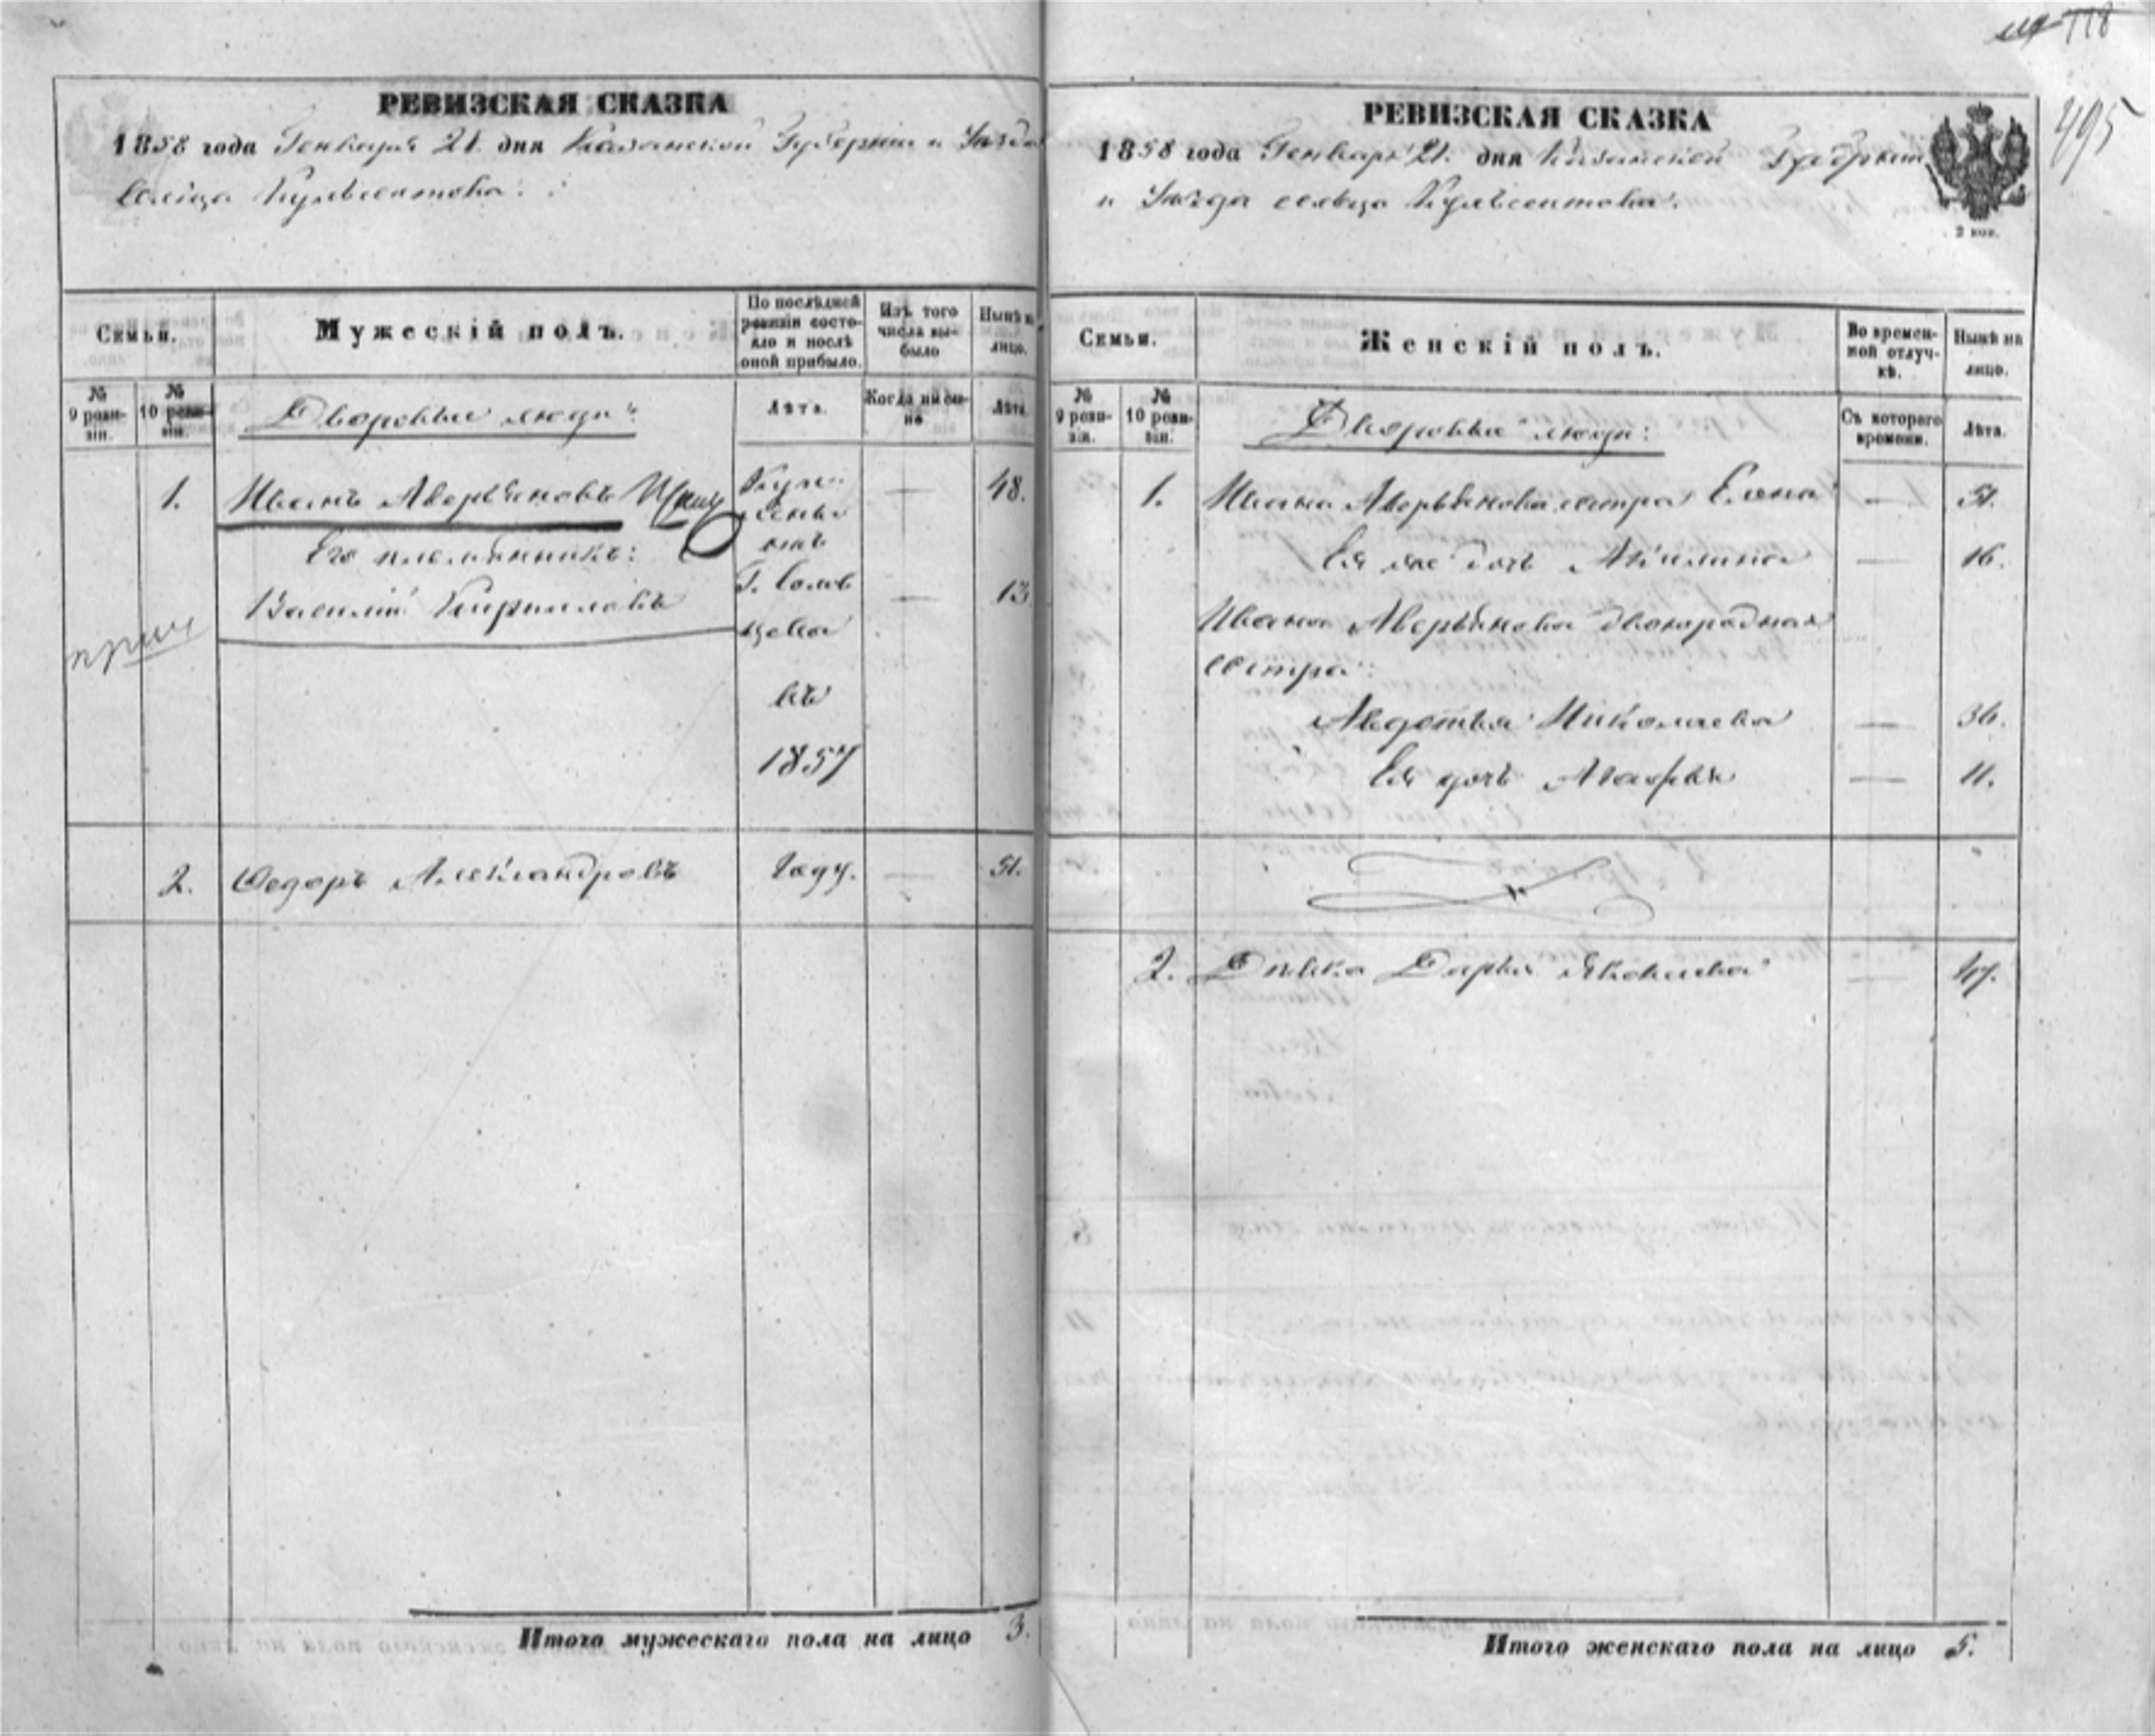 118
495
РЕВИЗСКАЯ СКАЗКА
1858 года Генваря 21. дня Казанской Губернiи и Уѣзда
сельца Кульсеитова:
Семьи.
Мужескiй полъ.
По послѣдней ревизiи состояло и послѣ оной прибыло.
Изъ того числа выбыло
Нынѣ на лицо.
№ 9 ревизiи.
№ 10 ревизiи.
Дворовые люди:
Лѣта.
Когда имянно
Лѣта.
1. Иванъ Аверьяновъ — 48.
Его племянникъ:
Василiй Кирилловъ — 13
Куплены отъ Г. в 1857
прич
2. Федоръ Александровъ году. — 51.
Итого мужескаго пола на лицо 3.
РЕВИЗСКАЯ СКАЗКА
1858 года Генваря 21. дня Казанской Губернiи
и Уѣзда сельца Кульсеитова:
2 коп.
Семьи.
Женскiй полъ.
Во временной отлучкѣ.
Нынѣ на лицо.
№ 9 ревизiи.
№ 10 ревизiи.
Дворовые люди:
Съ котораго времени.
Лѣта.
1. Ивана Аверьянова сестра Елена — 51.
Ея же дочь Акилина — 16.
Ивана Аверьянова двоюродная
сестра:
Авдотья Николаева — 36.
Ея дочь Агафья — 11.
2. Дѣвка Дарья Яковлева — 47.
Итого женскаго пола на лицо 5.